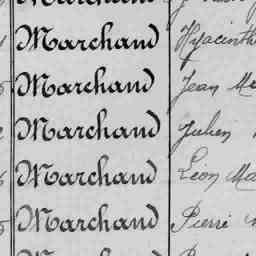 Marchand Hyacinth
Marchand Jean
Marchand Julien
Marchand Léon
Marchand Pierre